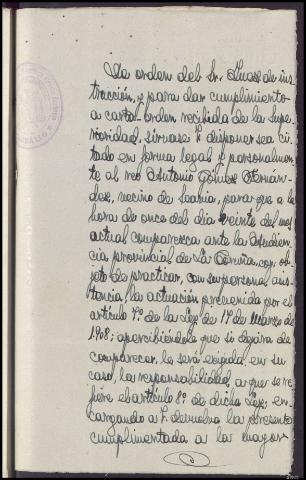 De orden del Sr. Juez de ins-
trucción, y para dar cumplimiento
a carta-orden recibida de la Supe-
rioridad, sírvase V. disponer sea ci-
tado en forma legal y personalmen-
te al reo Antonio Gómez Fernán-
dez, vecino de para que a la
hora de once del día veinte del mes
actual comparezca ante la Audien-
cia provincial de La Coruña, con ob-
jeto de practicar, con su personal asis-
tancia, la actuación prevenida por el
artículo 7º de la Ley de 17 de Marzo de
1908; apercibiéndole que si dejara de
comparecer, le será exigida en su
caso, la responsabilidad, a que se re-
fiere el artículo 8º de dicha Ley; en-
cargando a V. devuelva la presente
cumplimentada a la mayor